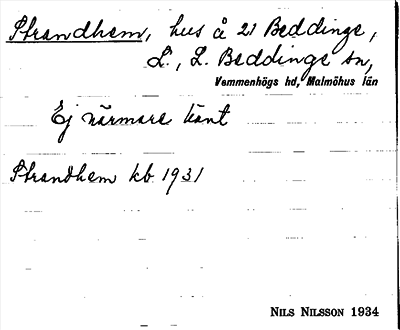 Strandhem, hus å 21 Beddinge,
L., L. Beddinge sn,
Vemmenhögs hd, Malmöhus län
Ej närmare känt
Strandhem kb 1931
NILS NILSSON 1934